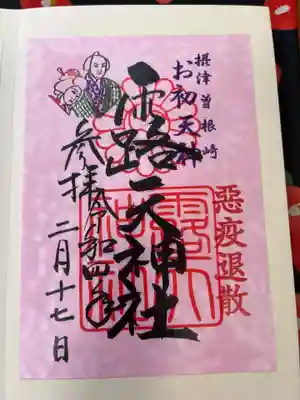 摂津曽根崎
お初天神
露天神社
惡疫退散
参拝
令和四年
二月十七日